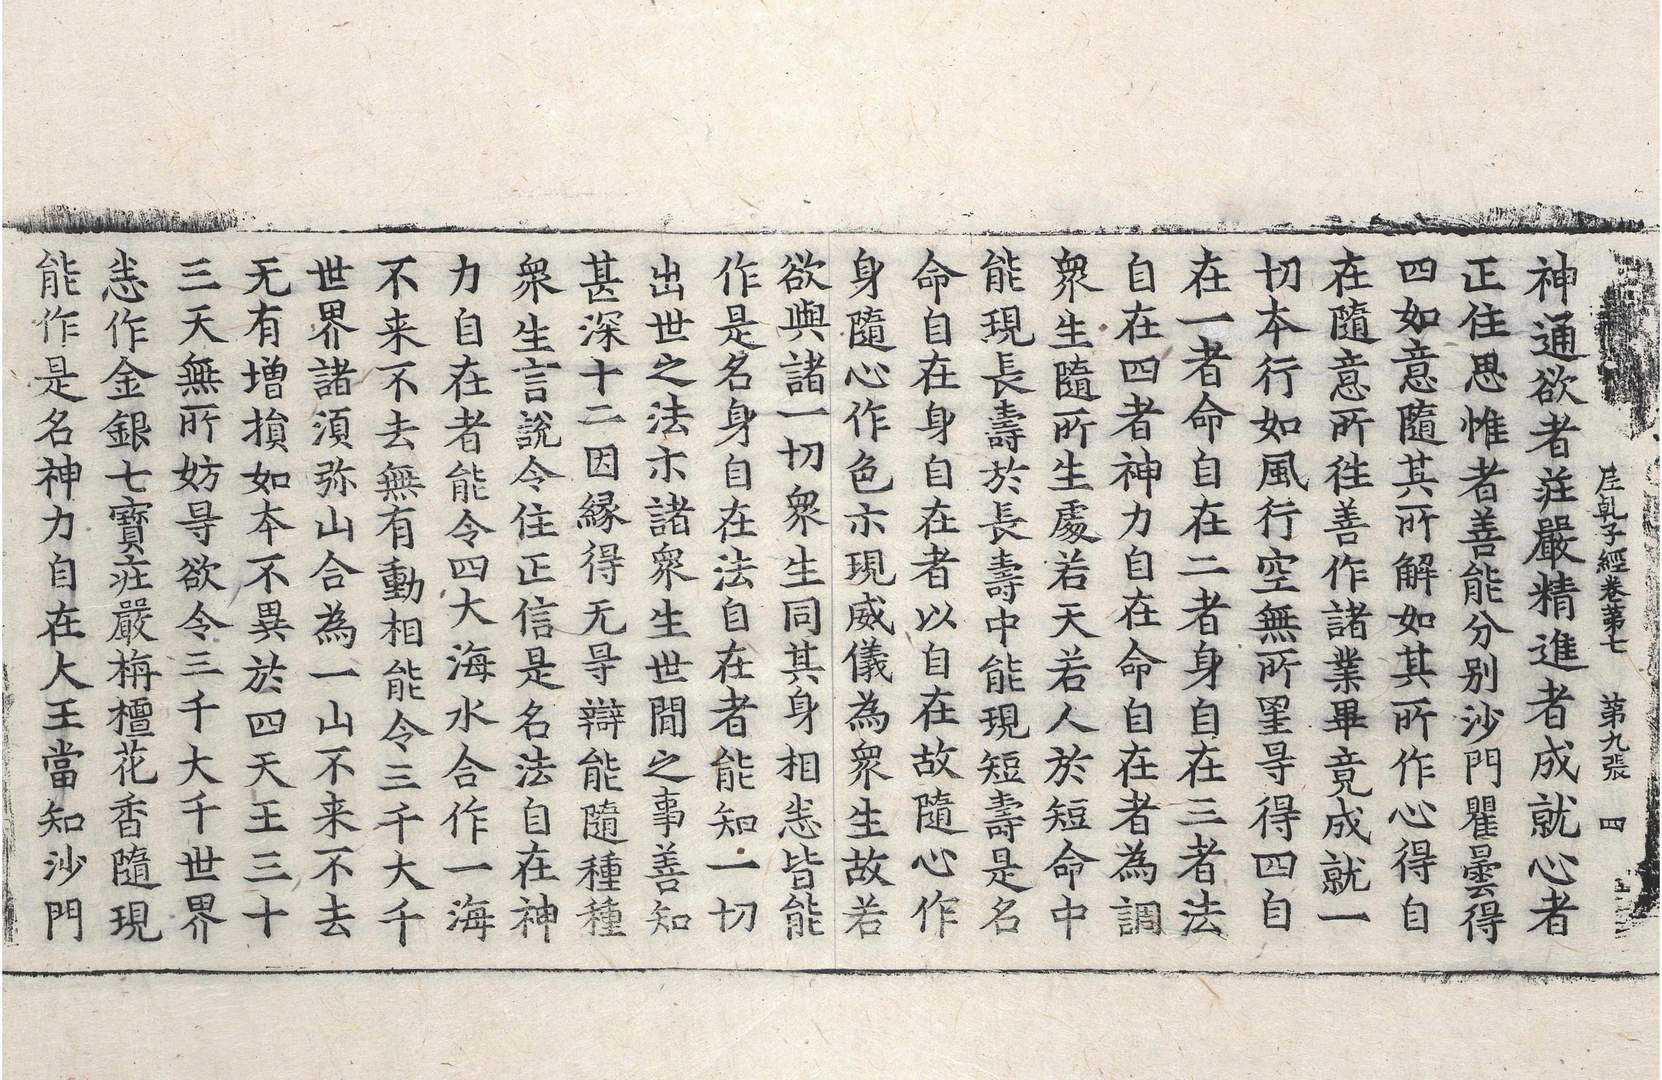 尼乹子經卷第七　第九張　四
神通欲者莊嚴精進者成就心者
正住思惟者善能分别沙門瞿曇得
四如意隨其所解如其所作心得自
在隨意所徃善作諸業畢竟成就一
切本行如風行空無所罣㝵得四自
在一者命自在二者身自在三者法
自在四者神力自在命自在者為調
衆生隨所生處若天若人於短命中
能現長壽於長壽中能現短壽是名
命自在身自在者以自在故隨心作
身隨心作色示現威儀為衆生故若
欲與諸一切衆生同其身相悉皆能
作是名身自在法自在者能知一切
出世之法示諸衆生世間之事善知
甚深十二因縁得无㝵辯能隨種種
衆生言說令住正信是名法自在神
力自在者能令四大海水合作一海
不来不去無有動相能令三千大千
世界諸須弥山合為一山不来不去
无有增損如本不異於四天王三十
三天無所妨㝵欲令三千大千世界
悉作金銀七寶莊嚴栴檀花香隨現
能作是名神力自在大王當知沙門